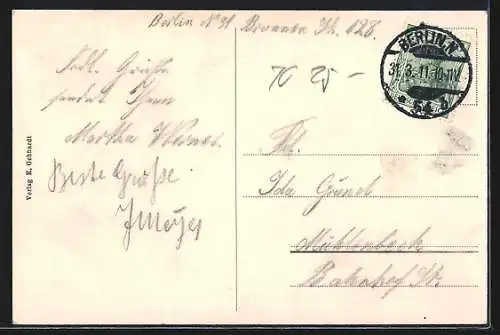 Berlin N 31 Brunnen Str. 128.
BERLIN.N.
31.3.11.10-11V.
* 54 b
K 25 -
Frdl. Grüße
sendet Ihnen
Martha
Beste Grüße
J Meyer
Frl.
Ida Grundt
Mühlenbeck
Bahnhof Str.
Verlag E. Gebhardt